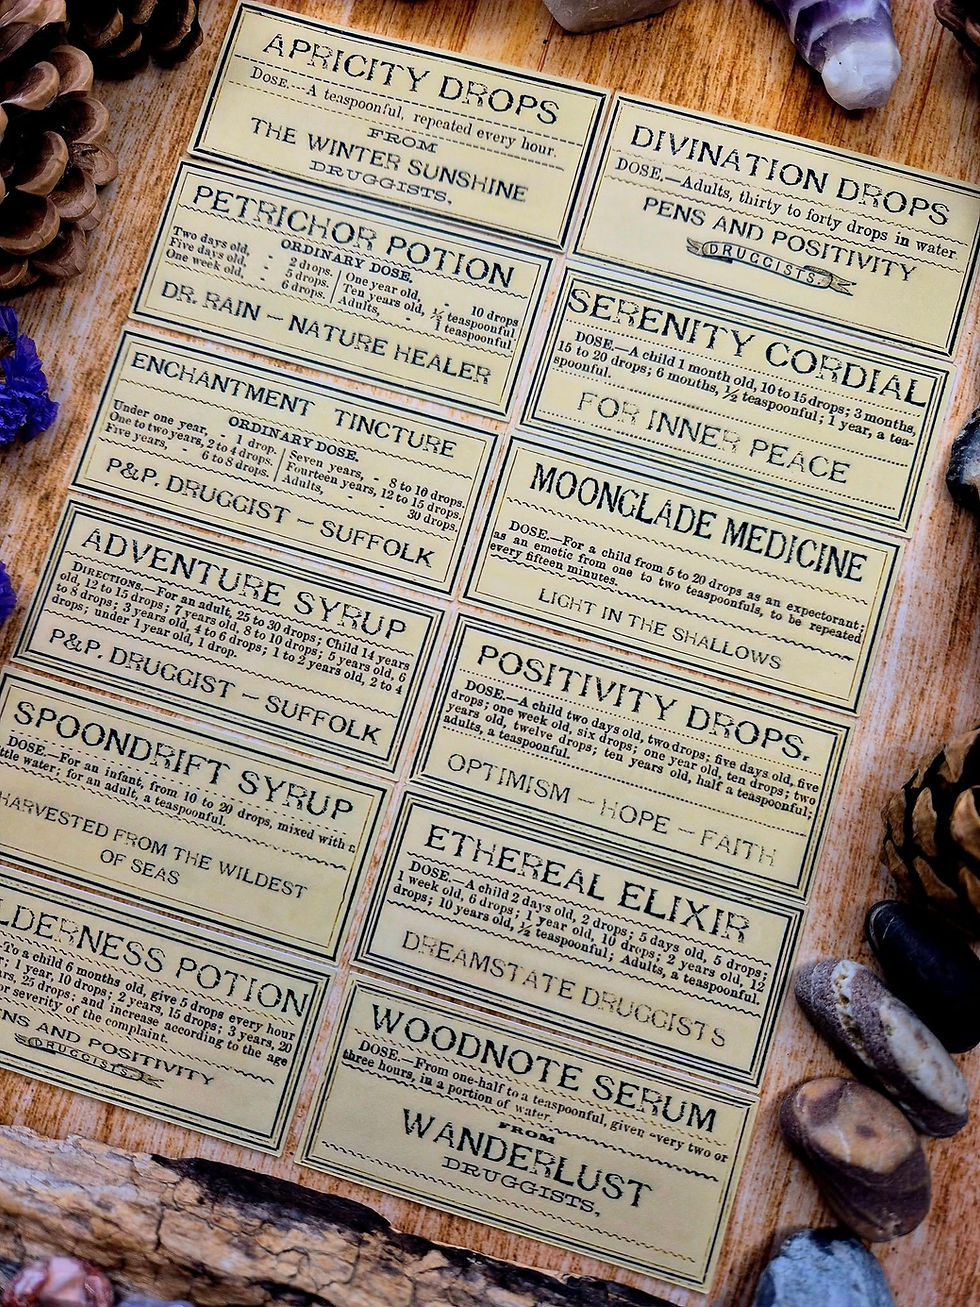 APRICITY DROPS
DOSE.—A teaspoonful, repeated every hour.
FROM
THE WINTER SUNSHINE
DRUGGISTS.
PETRICHOR POTION
ORDINARY DOSE.
Two days old, - 2 drops.
Five days old, - 5 drops.
One week old, - 6 drops.
One year old, - 10 drops
Ten years old, ½ teaspoonful
Adults, - 1 teaspoonful
DR. RAIN – NATURE HEALER
ENCHANTMENT TINCTURE
ORDINARY DOSE.
Under one year, - 1 drop.
One to two years, 2 to 4 drops.
Five years, - 6 to 8 drops.
Seven years, - 8 to 10 drops.
Fourteen years, 12 to 15 drops.
Adults, - 30 drops.
P&P. DRUGGIST – SUFFOLK
ADVENTURE SYRUP
DIRECTIONS.—For an adult, 25 to 30 drops; Child 14 years
old, 12 to 15 drops; 7 years old, 8 to 10 drops; 5 years old, 6
to 8 drops; 3 years old, 4 to 6 drops; 1 to 2 years old, 2 to 4
drops; under 1 year old, 1 drop.
P&P. DRUGGIST – SUFFOLK
SPOONDRIFT SYRUP
DOSE.—For an infant, from 10 to 20 drops, mixed with a
ttle water; for an adult, a teaspoonful.
HARVESTED FROM THE WILDEST
OF SEAS
LDERNESS POTION
To a child 6 months old, give 5 drops every hour
r; 1 year, 10 drops; 2 years, 15 drops; 3 years, 20
rs, 25 drops; and increase according to the age
or severity of the complaint.
NS AND POSITIVITY
DRUGGISTS
DIVINATION DROPS
DOSE.—Adults, thirty to forty drops in water
PENS AND POSITIVITY
DRUGGISTS
SERENITY CORDIAL
DOSE.—A child 1 month old, 10 to 15 drops; 3 months,
15 to 20 drops; 6 months, ½ teaspoonful; 1 year, a tea-
spoonful.
FOR INNER PEACE
MOONGLADE MEDICINE
DOSE.—For a child from 5 to 20 drops as an expectorant;
as an emetic from one to two teaspoonfuls, to be repeated
every fifteen minutes.
LIGHT IN THE SHALLOWS
POSITIVITY DROPS.
DOSE.—A child two days old, two drops; five days old, five
drops; one week old, six drops; one year old, ten drops; two
years old, twelve drops; ten years old, half a teaspoonful;
adults, a teaspoonful.
OPTIMISM – HOPE – FAITH
ETHEREAL ELIXIR
DOSE.—A child 2 days old, 2 drops; 5 days old, 5 drops;
1 week old, 6 drops; 1 year old, 10 drops; 2 years old, 12
drops; 10 years old, ½ teaspoonful; Adults, a teaspoonful.
DREAMSTATE DRUGGISTS
WOODNOTE SERUM
DOSE.—From one-half to a teaspoonful, given every two or
three hours, in a portion of water.
FROM
WANDERLUST
DRUGGISTS.